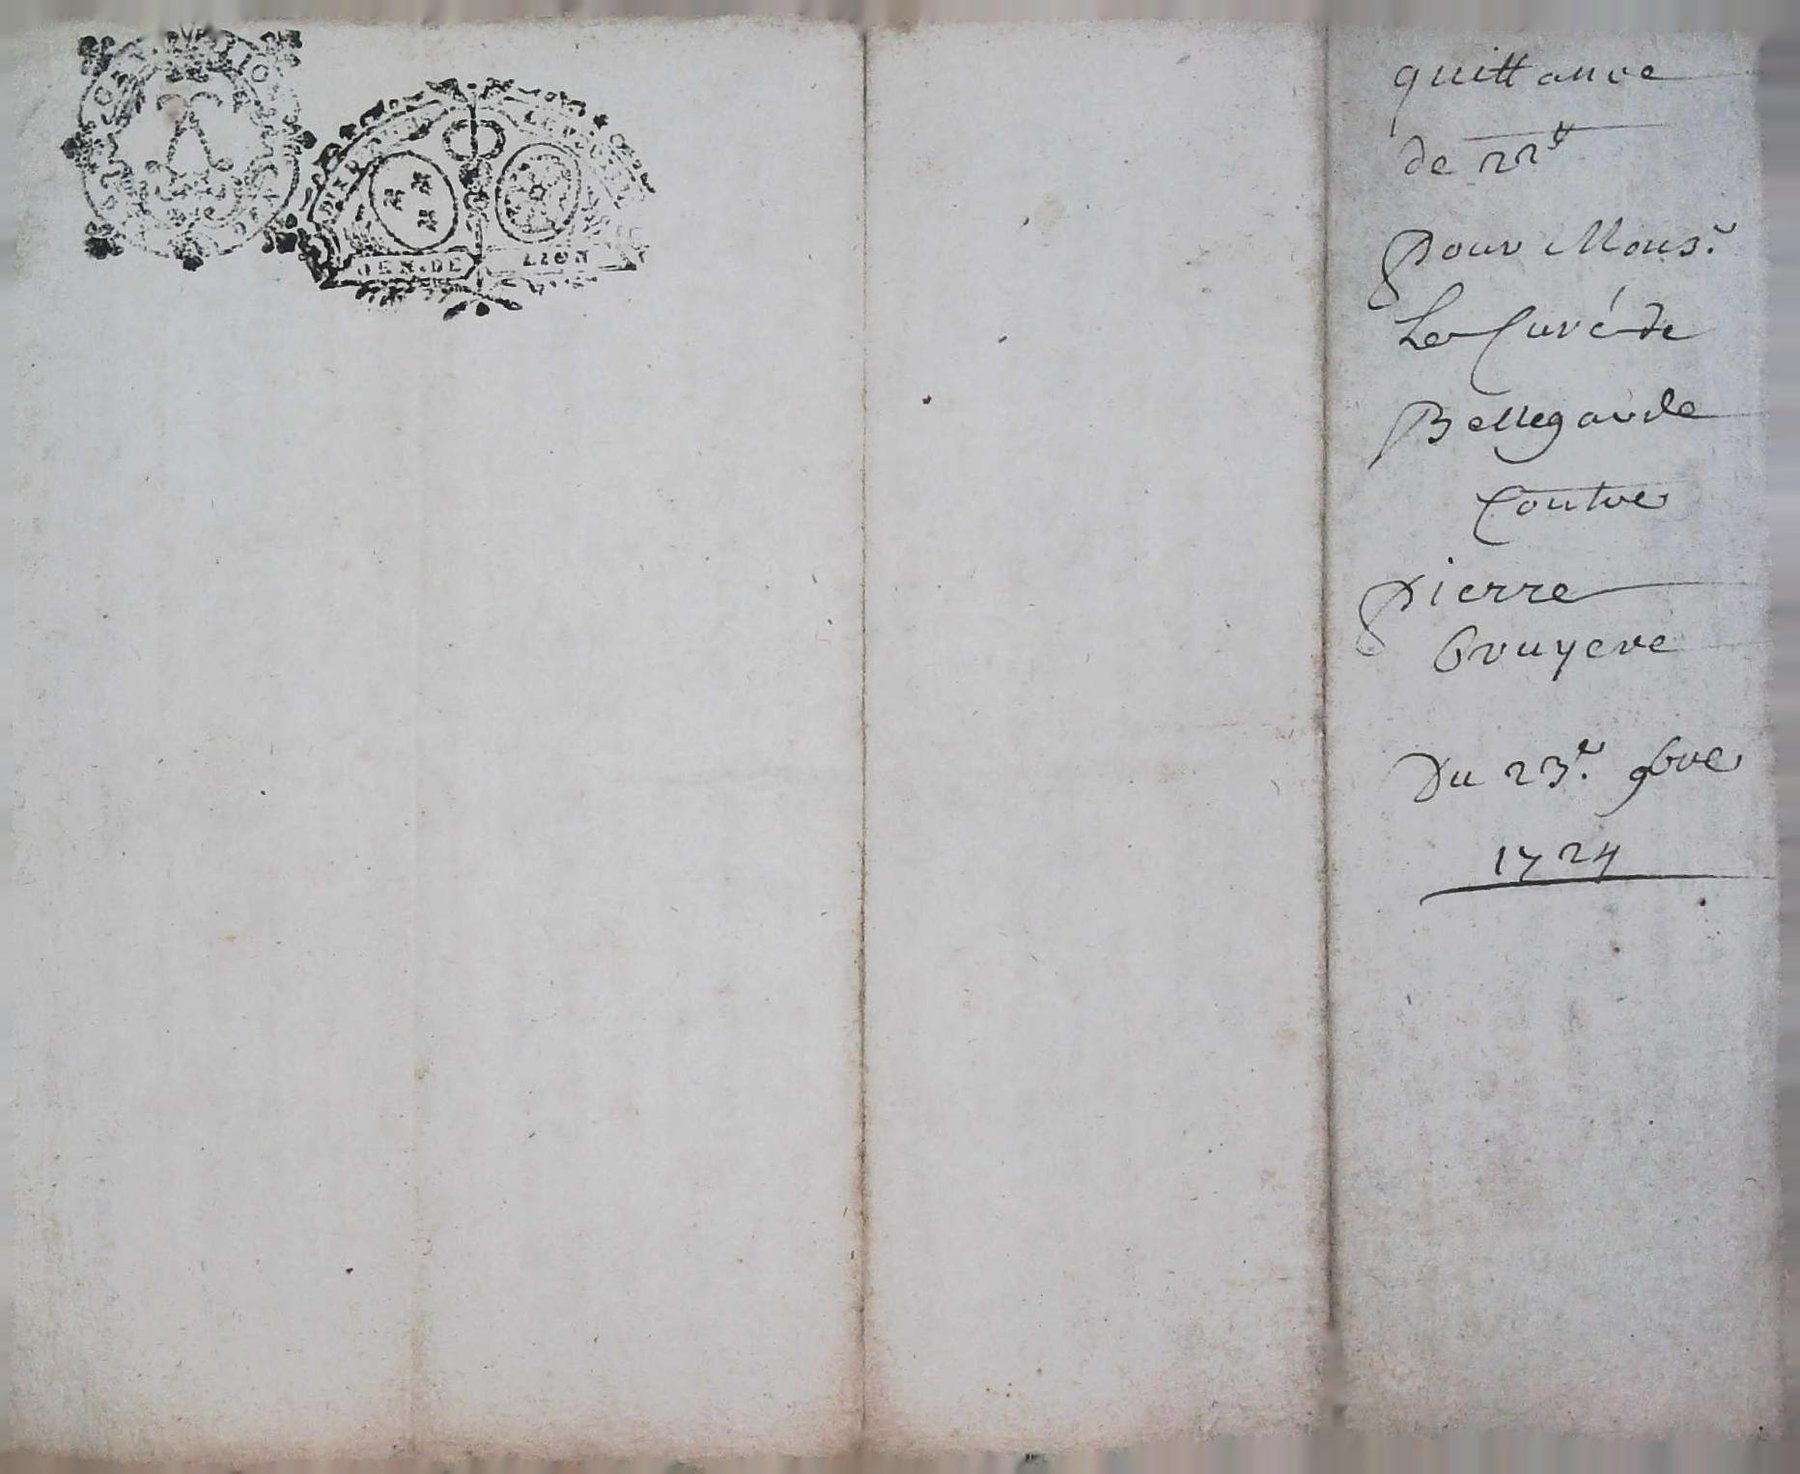 GEN. DE LION
quittance
de 22ᵗᵗ
pour Monsʳ.
Le Curé de
Bellegarde
Contre
pierre
bruyere
Du 23ᵉ. 9bre
1724